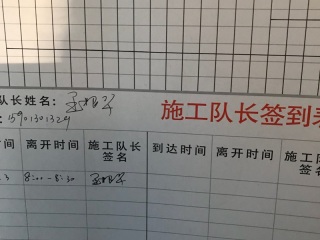 队长姓名：
施工队长签到表
: 15901301329
间 离开时间 施工队长签名 到达时间 离开时间 施工队签名
3 8:00-8:30